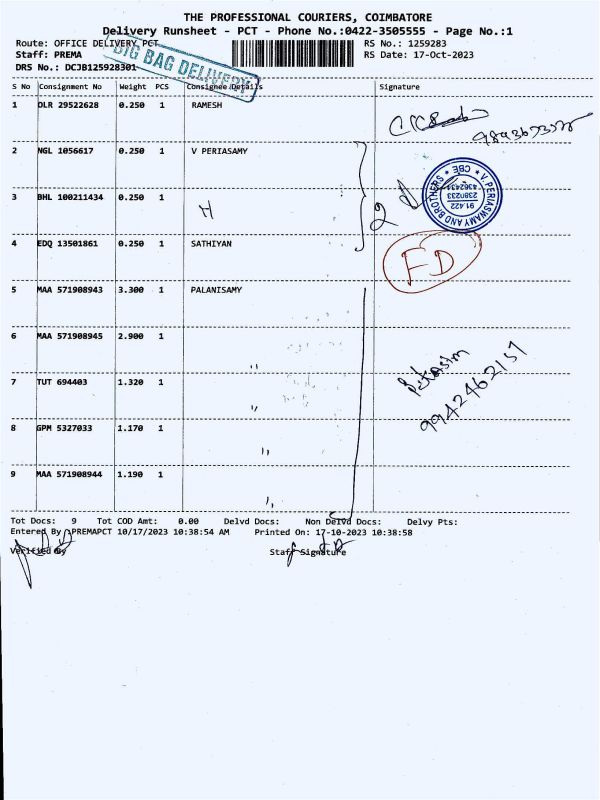 THE PROFESSIONAL COURIERS, COIMBATORE
Delivery Runsheet - PCT - Phone No.:0422-3505555 - Page No.:1
Route: OFFICE DELIVERY PCT
RS No.: 1259283
Staff: PREMA
RS Date: 17-Oct-2023
DRS No.: DCJB125928301
BIG BAG DELIVERY
S No Consignment No Weight PCS Consignee Details Signature
1 DLR 29522628 0.250 1 RAMESH
2 NGL 1056617 0.250 1 V PERIASAMY
3 BHL 100211434 0.250 1
V.PERIASWAMY AND BROTHERS * CBE *
91.422
2380233
4362434
4 EDQ 13501861 0.250 1 SATHIYAN
FD
5 MAA 571908943 3.300 1 PALANISAMY
6 MAA 571908945 2.900 1 "
9942462157
7 TUT 694403 1.320 1 "
8 GPM 5327033 1.170 1 "
9 MAA 571908944 1.190 1 "
Tot Docs: 9 Tot COD Amt: 0.00 Delvd Docs: Non Delvd Docs: Delvy Pts:
Entered By :PREMAPCT 10/17/2023 10:38:54 AM Printed On: 17-10-2023 10:38:58
Verified By Staff Signature